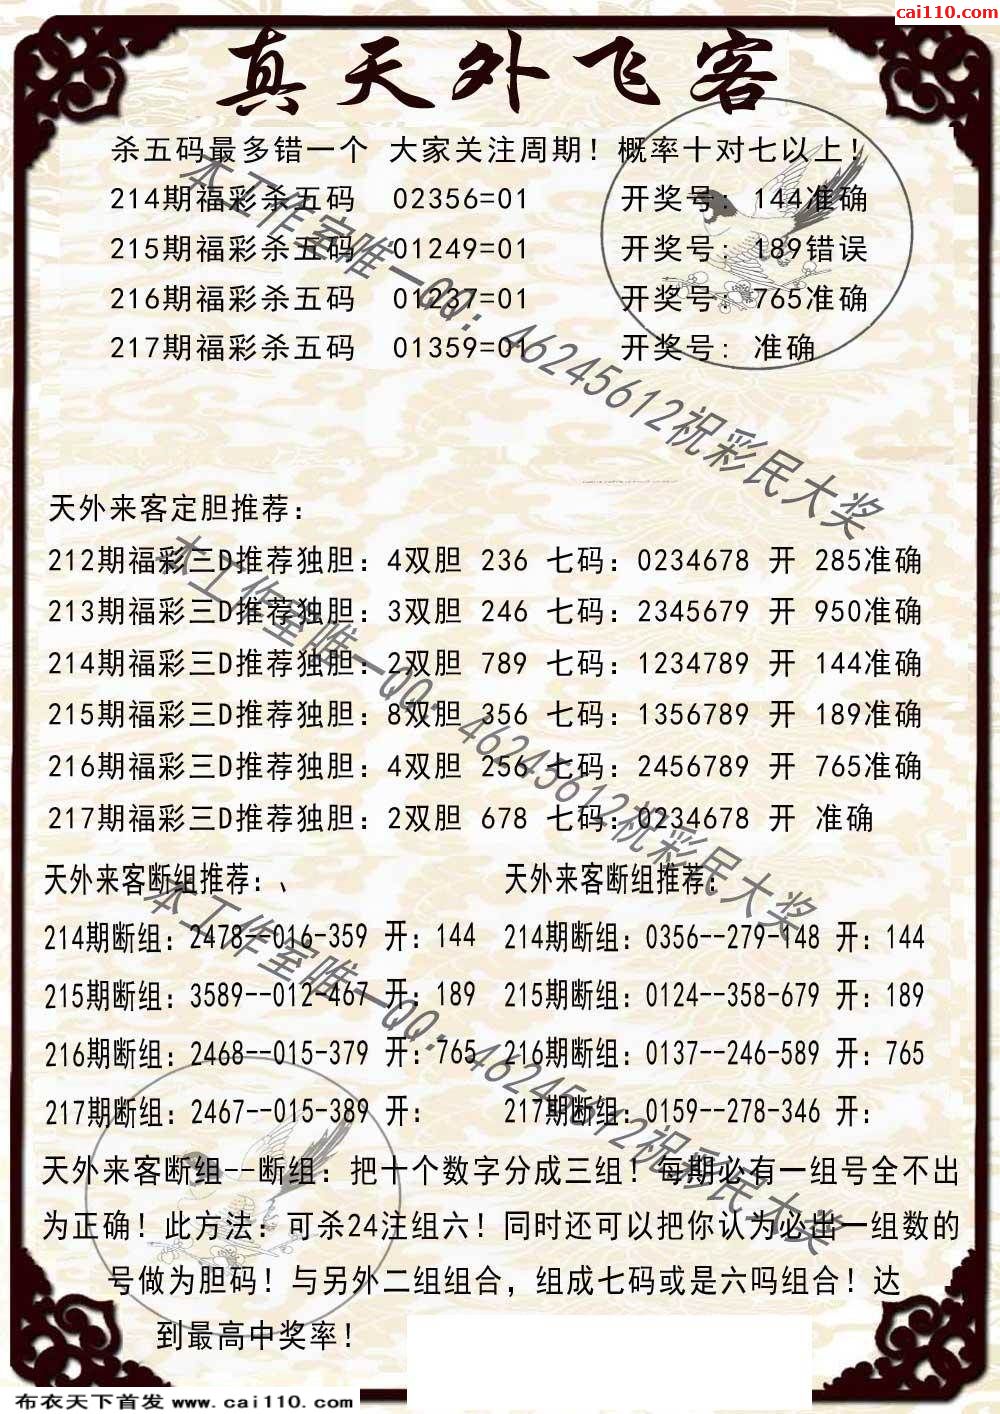 cai110.com
真天外飞客
杀五码最多错一个 大家关注周期！概率十对七以上！
214期福彩杀五码 02356=01 开奖号: 144准确
215期福彩杀五码 01249=01 开奖号: 189错误
216期福彩杀五码 01237=01 开奖号: 765准确
217期福彩杀五码 01359=01 开奖号: 准确
本工作室唯一QQ：46245612祝彩民大奖
天外来客定胆推荐：
212期福彩三D推荐独胆：4双胆 236 七码：0234678 开 285准确
213期福彩三D推荐独胆：3双胆 246 七码：2345679 开 950准确
214期福彩三D推荐独胆：2双胆 789 七码：1234789 开 144准确
215期福彩三D推荐独胆：8双胆 356 七码：1356789 开 189准确
216期福彩三D推荐独胆：4双胆 256 七码：2456789 开 765准确
217期福彩三D推荐独胆：2双胆 678 七码：0234678 开 准确
本工作室唯一QQ：46245612祝彩民大奖
天外来客断组推荐：、 天外来客断组推荐：
214期断组：2478--016-359 开：144 214期断组：0356--279-148 开：144
215期断组：3589--012-467 开：189 215期断组：0124--358-679 开：189
216期断组：2468--015-379 开：765 216期断组：0137--246-589 开：765
217期断组：2467--015-389 开： 217期断组：0159--278-346 开：
本工作室唯一QQ：46245612祝彩民大奖
天外来客断组--断组：把十个数字分成三组！每期必有一组号全不出
为正确！此方法：可杀24注组六！同时还可以把你认为必出一组数的
号做为胆码！与另外二组组合，组成七码或是六吗组合！达
到最高中奖率！
布衣天下首发 www.cai110.com